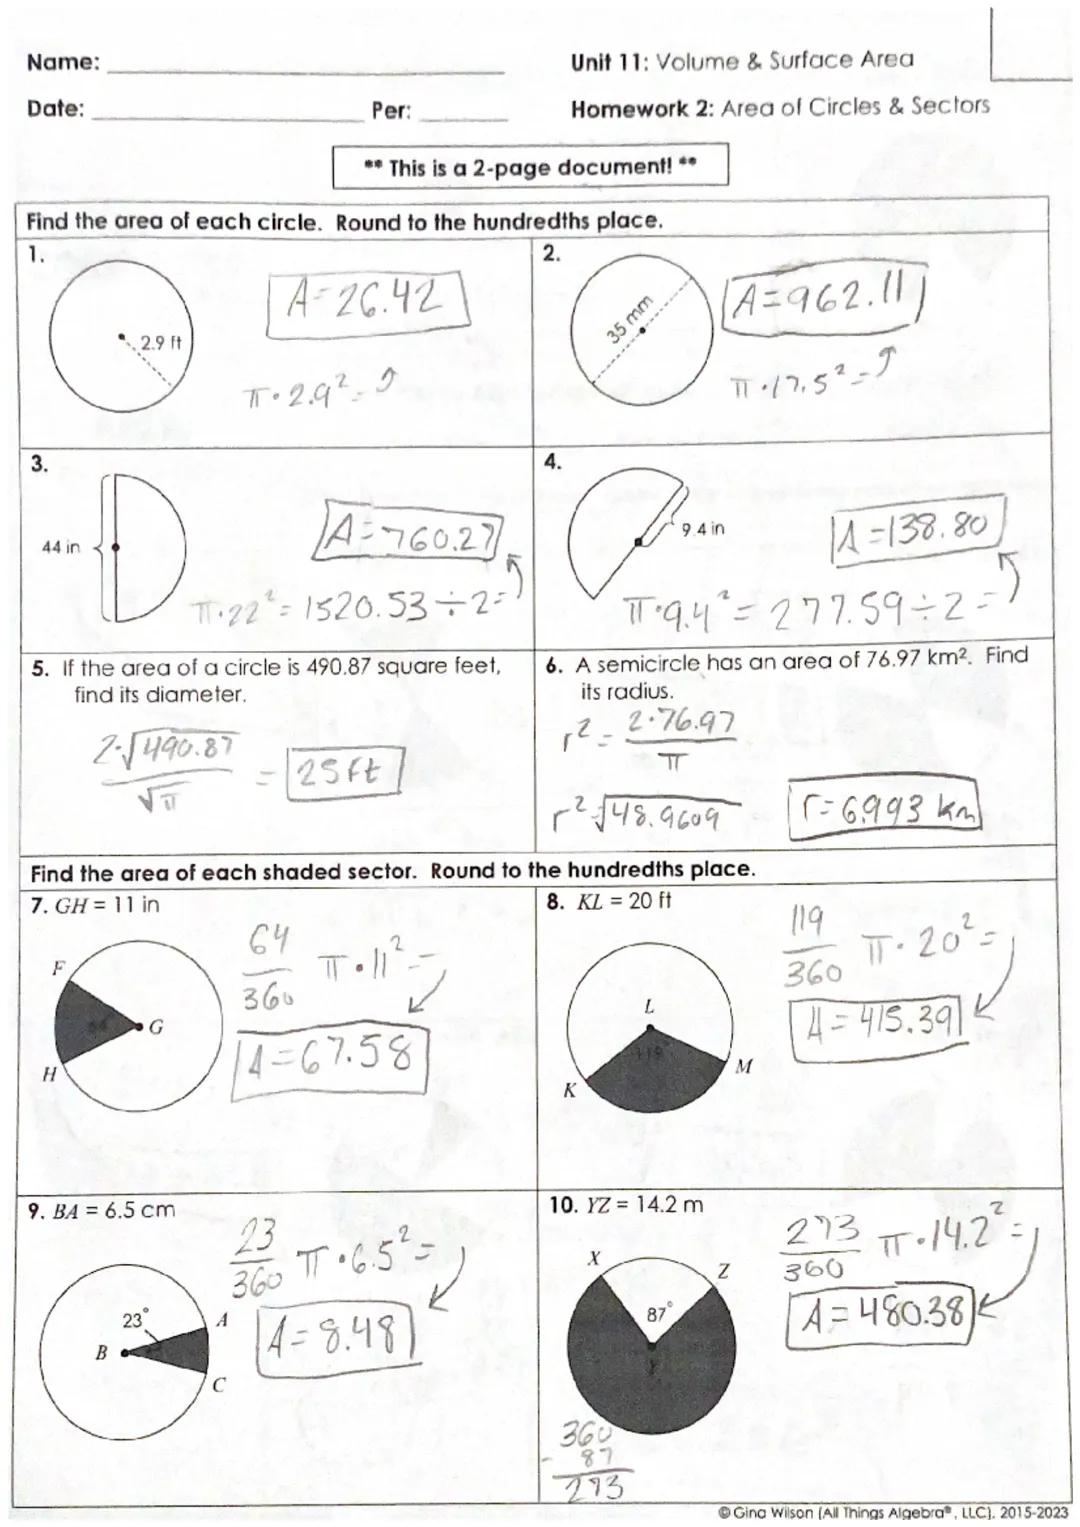 Name:
Unit 11: Volume & Surface Area
Date: Per:
Homework 2: Area of Circles & Sectors
** This is a 2-page document! **
Find the area of each circle. Round to the hundredths place.
1.
2.9 ft
A=26.42
π·2.9²=
2.
35 mm
A=962.11
π·17.5²=
3.
44 in
A=760.27
π·22²=1520.53÷2=
4.
9.4 in
A=138.80
π·9.4²=277.59÷2=
5. If the area of a circle is 490.87 square feet,
find its diameter.
2·√490.87
√π
= 25ft
6. A semicircle has an area of 76.97 km². Find
its radius.
r²= 2·76.97
π
r²√48.9609
r=6.993 km
Find the area of each shaded sector. Round to the hundredths place.
7. GH = 11 in
F
64°
G
H
64
360
π·11²=
A=67.58
8. KL = 20 ft
L
119°
M
K
119
360
π·20²=
A=415.39
9. BA = 6.5 cm
23°
A
B
C
23
360
π·6.5²=
A=8.48
10. YZ = 14.2 m
X
Z
87°
Y
273
360
π·14.2²=
A=480.38
360
- 87
273
© Gina Wilson (All Things Algebra®, LLC), 2015-2023